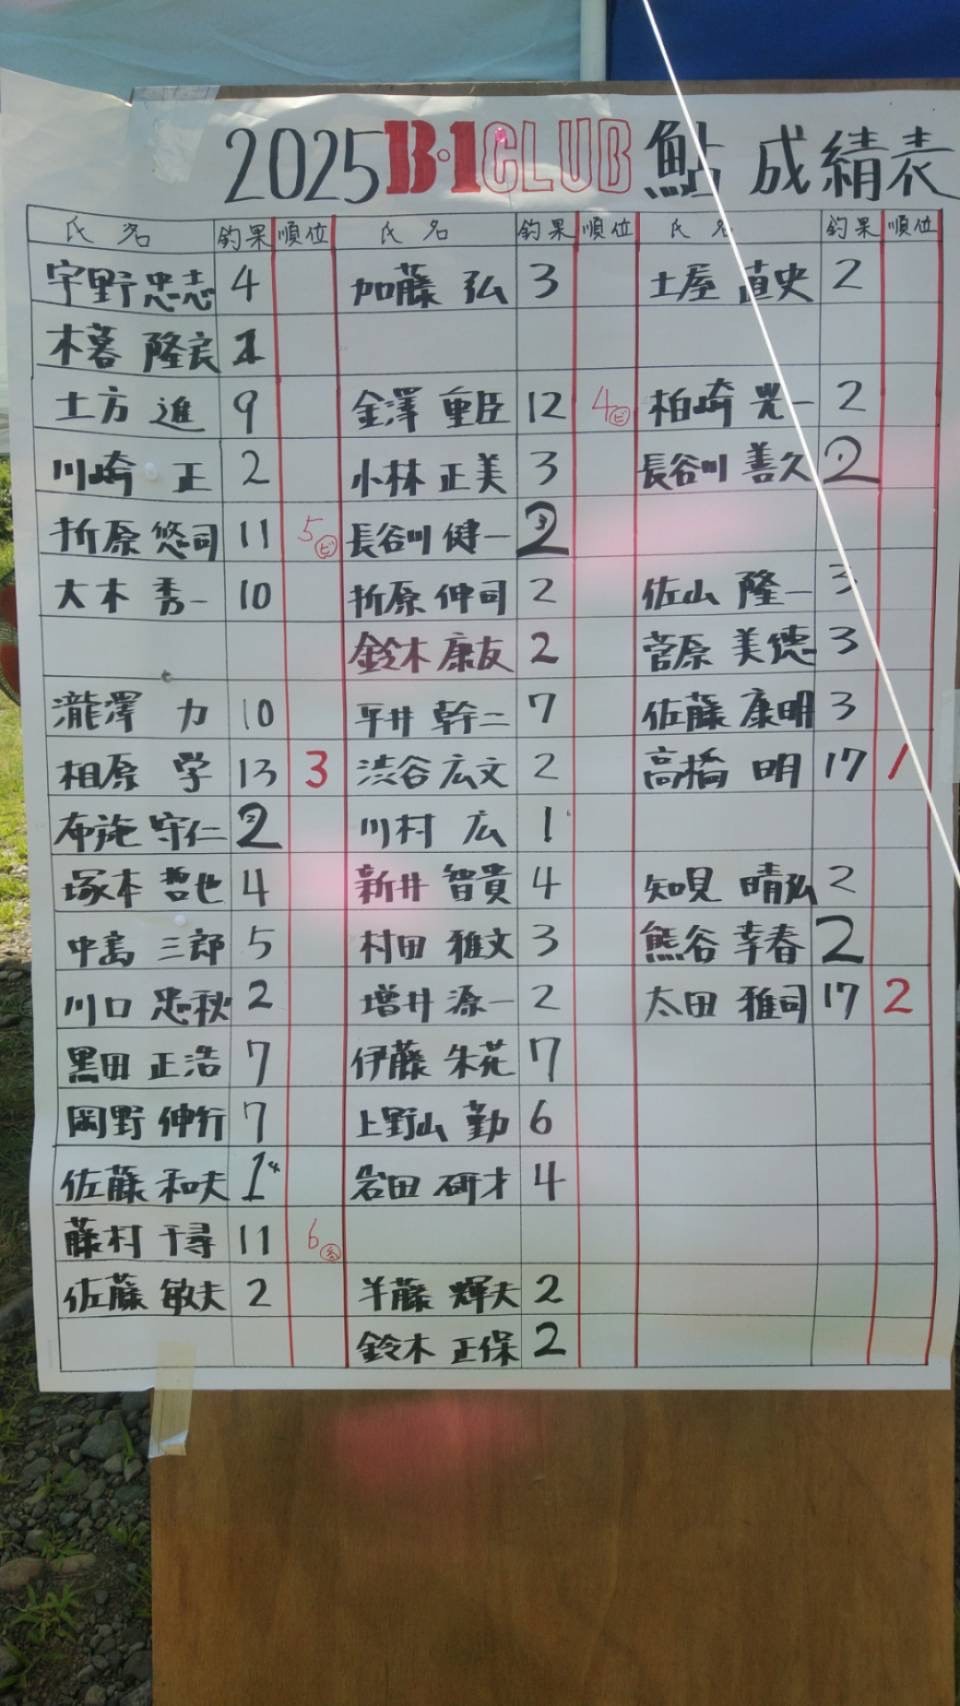 2025 B·1 CLUB 鮎 成績表
氏名 釣果 順位 氏名 釣果 順位 氏名 釣果 順位
宇野 忠志 4 加藤 弘 3 土屋 直史 2
木暮 隆良 1
土方 進 9 金澤 重臣 12 4 ビ 柏崎 光一 2
川崎 正 2 小林 正美 3 長谷川 善久 2
折原 悠司 11 5 ビ 長谷川 健一 2
大木 秀一 10 折原 伸司 2 佐山 隆一 3
鈴木 康友 2 菅原 美徳 3
瀧澤 力 10 平井 幹二 7 佐藤 康明 3
相原 学 13 3 渋谷 広文 2 高橋 明 17 1
布施 守仁 2 川村 広 1
塚本 哲也 4 新井 智貴 4 知見 晴弘 2
中島 三郎 5 村田 雅文 3 熊谷 幸春 2
川口 忠秋 2 増井 源一 2 太田 雅司 17 2
黒田 正浩 7 伊藤 朱花 7
岡野 伸行 7 上野山 勤 6
佐藤 和夫 1 岩田 研才 4
藤村 千尋 11 6
佐藤 敏夫 2 半藤 輝夫 2
鈴木 正保 2